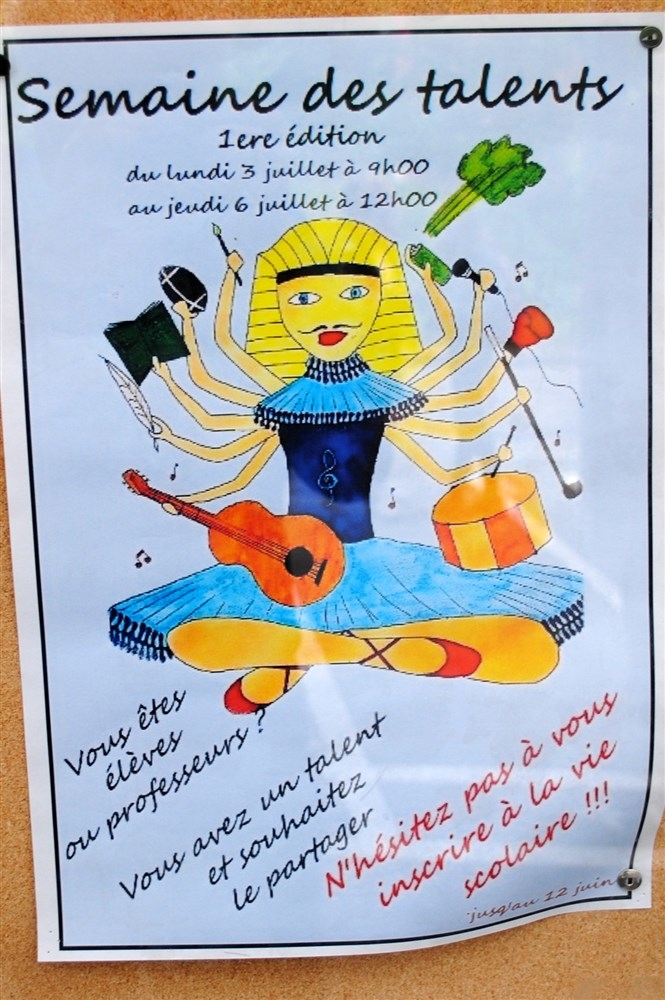 Semaine des talents
1ere édition
du lundi 3 juillet à 9h00
au jeudi 6 juillet à 12h00
Vous êtes
élèves
ou professeurs ?
Vous avez un talent
et souhaitez
le partager
N'hésitez pas à vous
inscrire à la vie
scolaire !!!
jusqu'au 12 juin